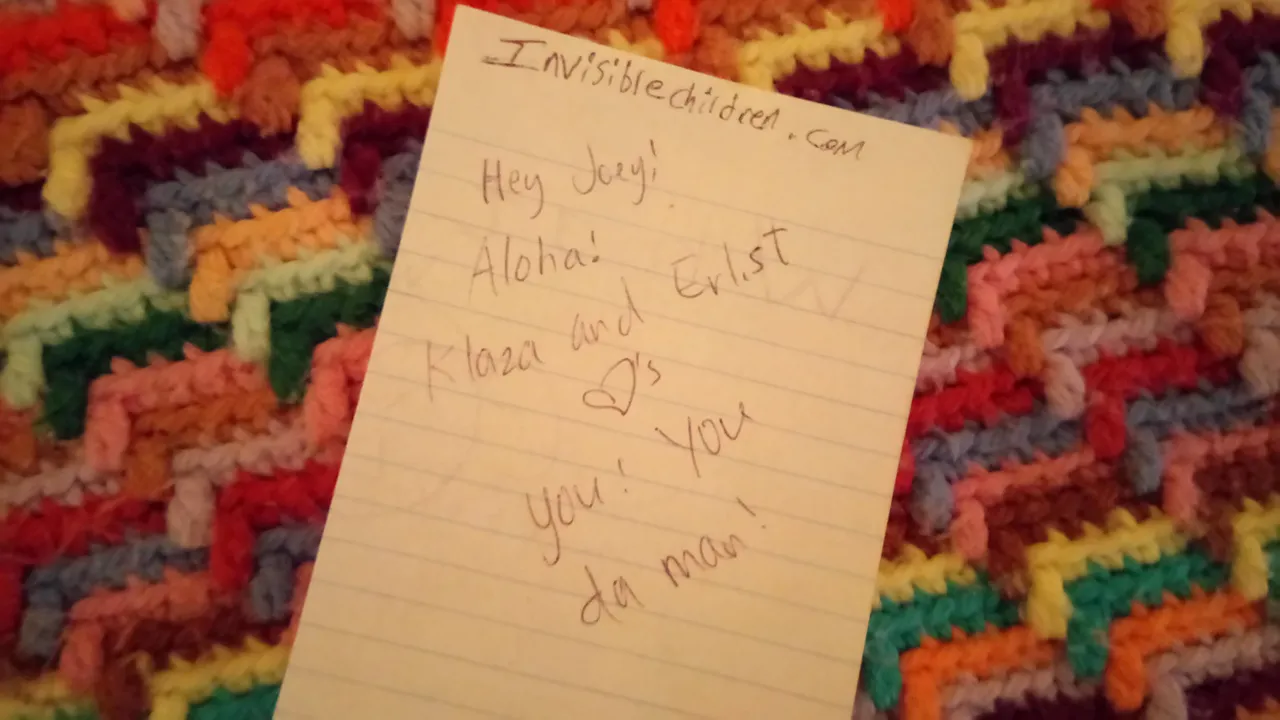 Invisiblechildren.com
Hey Joey!
Aloha!
Klaza and Erlist
♡'s
you! You
da man!